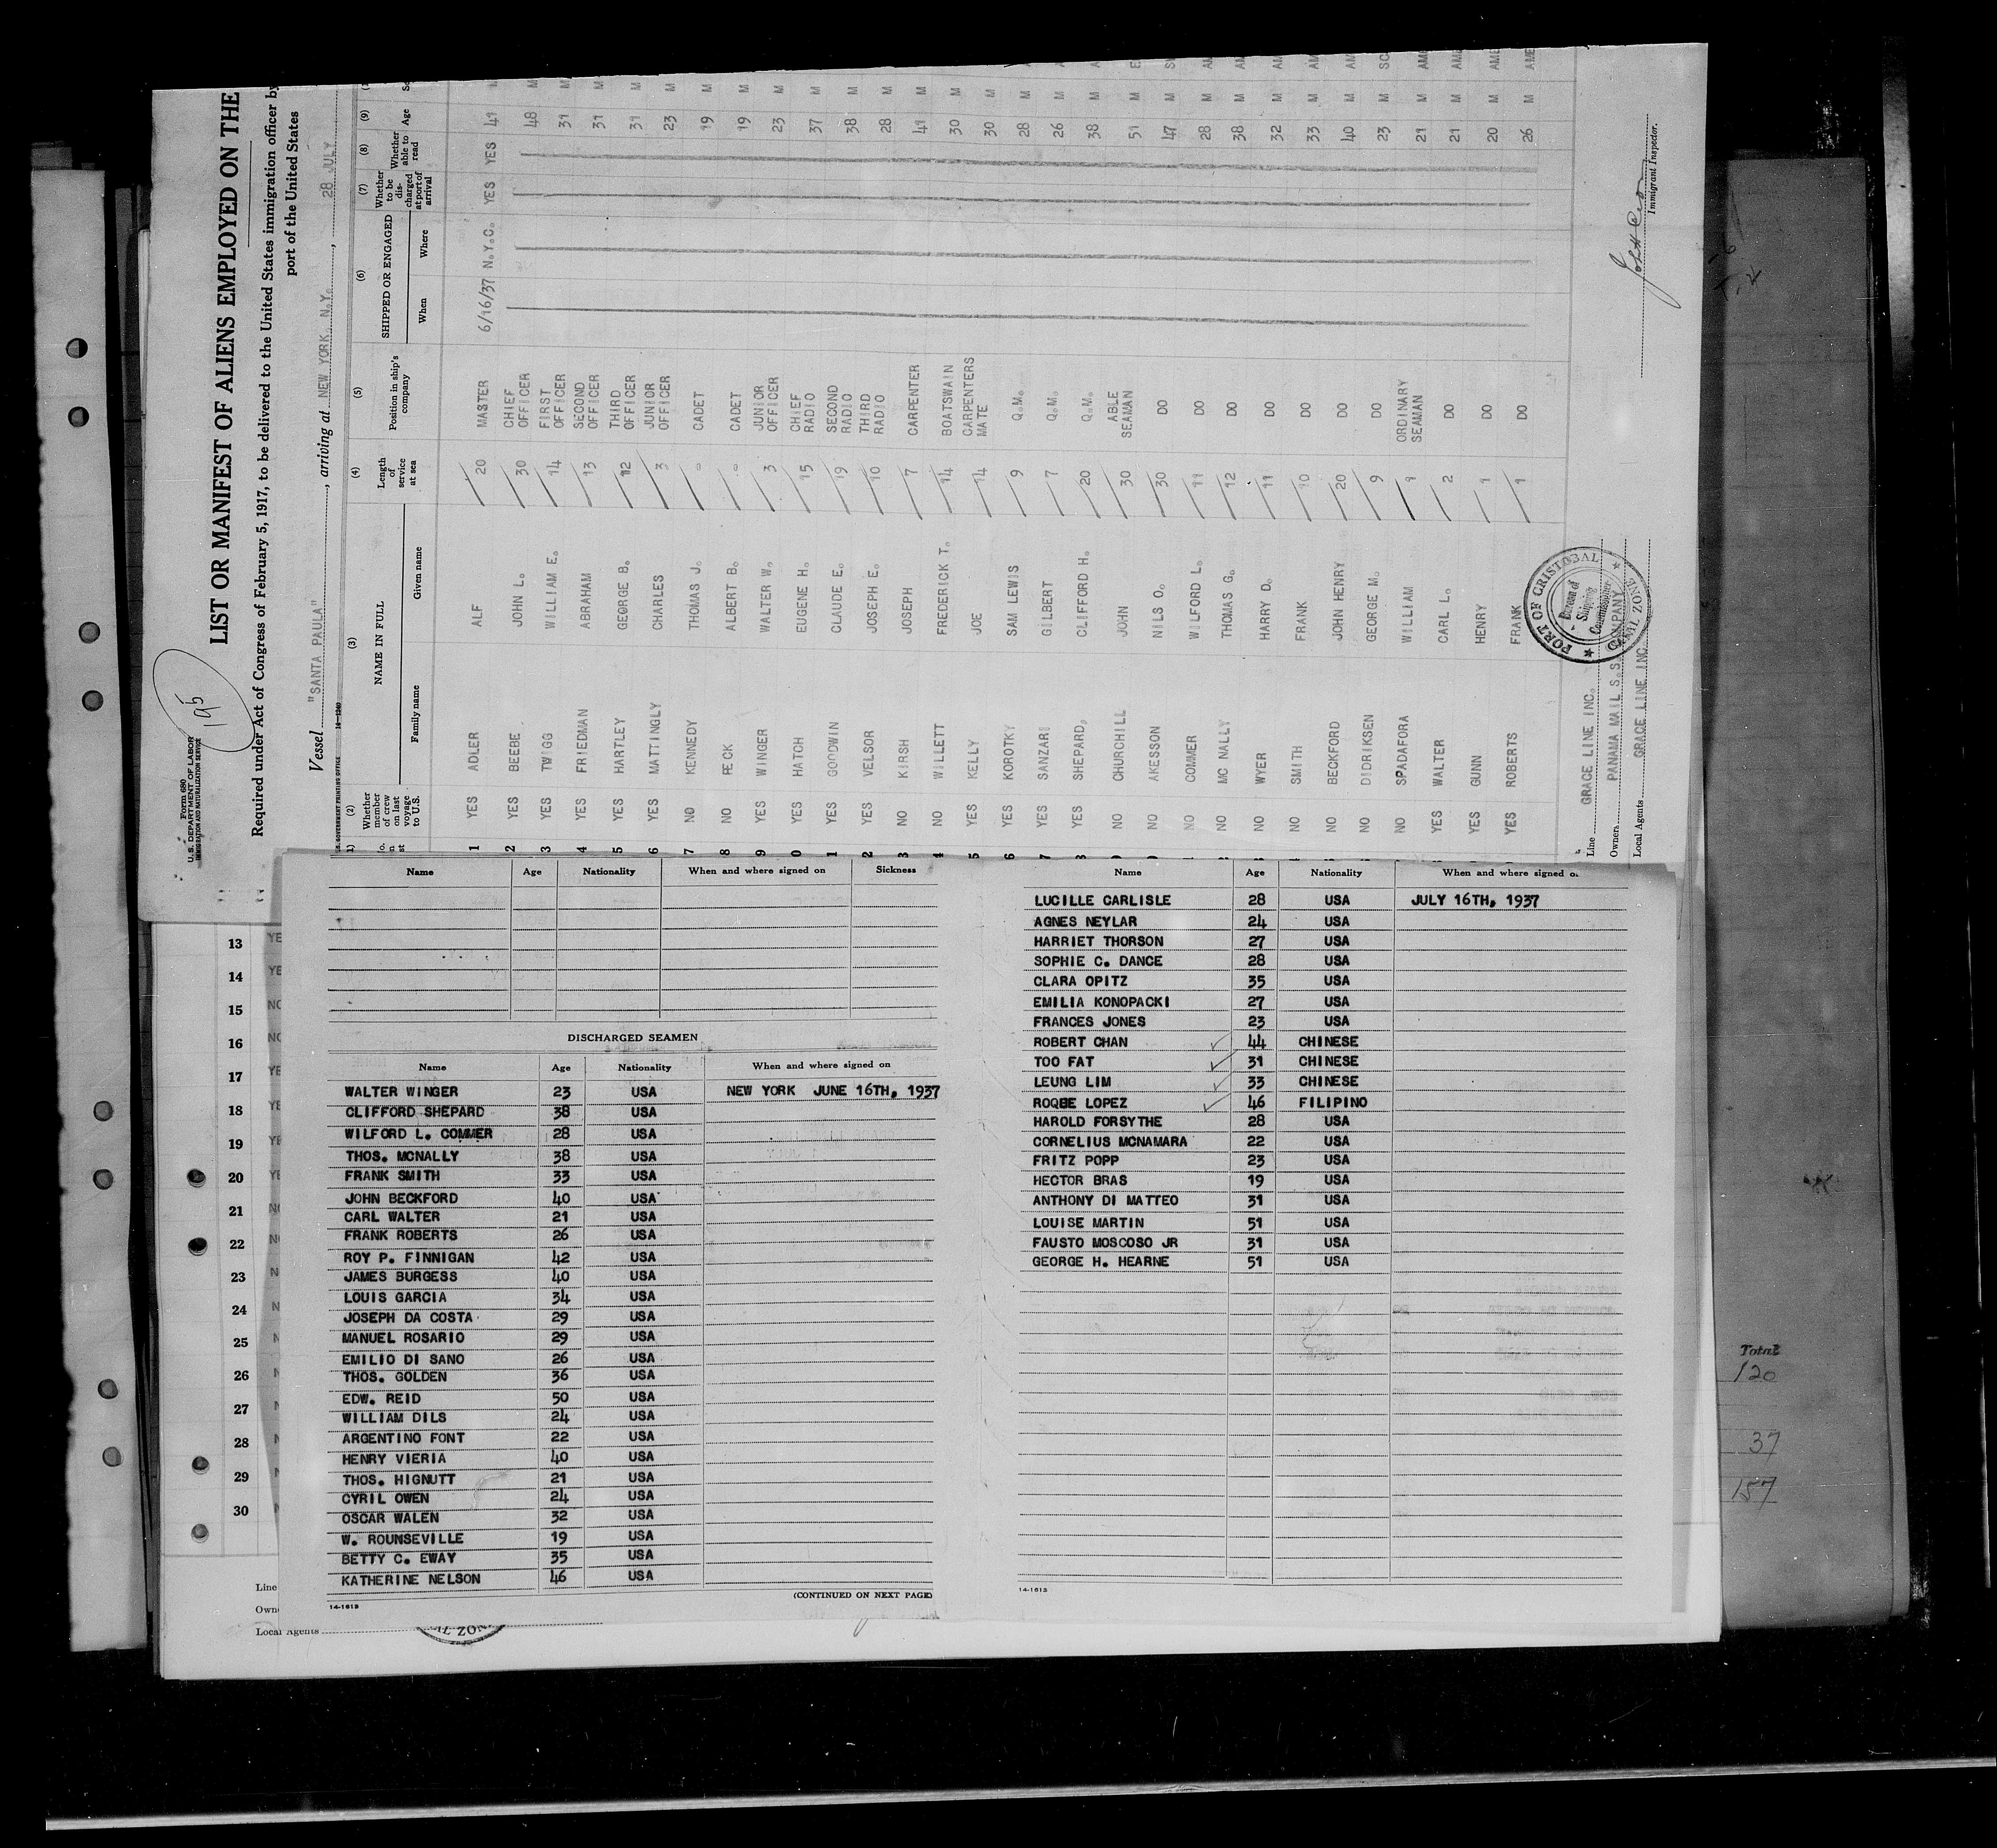 195
Form 680
U.S. DEPARTMENT OF LABOR
IMMIGRATION AND NATURALIZATION SERVICE
LIST OR MANIFEST OF ALIENS EMPLOYED ON THE
Required under Act of Congress of February 5, 1917, to be delivered to the United States immigration officer by
port of the United States
Vessel "SANTA PAULA", arriving at NEW YORK, N.Y., 28 JULY
U.S. GOVERNMENT PRINTING OFFICE 14-1240
(2) (3) (4) (5) (6) (7) (8) (9)
Whether member of crew on last voyage to U.S. NAME IN FULL Length of service at sea Position in ship's company SHIPPED OR ENGAGED Whether to be discharged at port of arrival Whether able to read Age
Family name Given name When Where
1 YES ADLER ALF 20 MASTER 6/16/37 N.Y.C. YES YES 41 M
2 YES BEEBE JOHN L. 30 CHIEF OFFICER 48 M
3 YES TWIGG WILLIAM E. 14 FIRST OFFICER 31 M
4 YES FRIEDMAN ABRAHAM 13 SECOND OFFICER 31 M
5 YES HARTLEY GEORGE B. 12 THIRD OFFICER 31 M
6 YES MATTINGLY CHARLES 3 JUNIOR OFFICER 23 M
7 NO KENNEDY THOMAS J. 0 CADET 19 M
8 NO PECK ALBERT B. 0 CADET 19 M
9 YES WINGER WALTER W. 3 JUNIOR OFFICER 23 M
0 YES HATCH EUGENE H. 15 CHIEF RADIO 37 M
1 YES GOODWIN CLAUDE E. 19 SECOND RADIO 38 M
2 YES VELSOR JOSEPH E. 10 THIRD RADIO 28 M
3 NO KIRSH JOSEPH 7 CARPENTER 41 M
4 NO WILLETT FREDERICK T. 14 BOATSWAIN 30 M
5 YES KELLY JOE 14 CARPENTERS MATE 30 M
6 YES KOROTKY SAM LEWIS 9 Q.M. 28 M
7 YES SANZARI GILBERT 7 Q.M. 26 M
8 YES SHEPARD. CLIFFORD H. 20 Q.M. 38 M
NO CHURCHILL JOHN 30 ABLE SEAMAN 51 M
NO AKESSON NILS O. 30 DO 47 M
NO COMMER WILFORD L. 11 DO 28 M
NO MC NALLY THOMAS G. 12 DO 38 M
NO WYER HARRY D. 11 DO 32 M
NO SMITH FRANK 10 DO 33 M
NO BECKFORD JOHN HENRY 20 DO 40 M
NO DIDRIKSEN GEORGE M. 9 DO 23 M
NO SPADAFORA WILLIAM 1 ORDINARY SEAMAN 21 M
YES WALTER CARL L. 2 DO 21 M
YES GUNN HENRY 1 DO 20 M
YES ROBERTS FRANK 1 DO 26 M
Line GRACE LINE INC.
Owners PANAMA MAIL S.S. COMPANY
Local Agents GRACE LINE INC
PORT OF CRISTOBAL
Bureau of
Shipping
Commissioner
CANAL ZONE
Immigrant Inspector.
Name Age Nationality When and where signed on Sickness
DISCHARGED SEAMEN
Name Age Nationality When and where signed on
WALTER WINGER 23 USA NEW YORK JUNE 16TH, 1937
CLIFFORD SHEPARD 38 USA
WILFORD L. COMMER 28 USA
THOS. MCNALLY 38 USA
FRANK SMITH 33 USA
JOHN BECKFORD 40 USA
CARL WALTER 21 USA
FRANK ROBERTS 26 USA
ROY P. FINNIGAN 42 USA
JAMES BURGESS 40 USA
LOUIS GARCIA 34 USA
JOSEPH DA COSTA 29 USA
MANUEL ROSARIO 29 USA
EMILIO DI SANO 26 USA
THOS. GOLDEN 36 USA
EDW. REID 50 USA
WILLIAM DILS 24 USA
ARGENTINO FONT 22 USA
HENRY VIERIA 40 USA
THOS. HIGNUTT 21 USA
CYRIL OWEN 24 USA
OSCAR WALEN 32 USA
W. ROUNSEVILLE 19 USA
BETTY C. EWAY 35 USA
KATHERINE NELSON 46 USA
(CONTINUED ON NEXT PAGE)
14-1613
Name Age Nationality When and where signed o
LUCILLE CARLISLE 28 USA JULY 16TH, 1937
AGNES NEYLAR 24 USA
HARRIET THORSON 27 USA
SOPHIE C. DANCE 28 USA
CLARA OPITZ 35 USA
EMILIA KONOPACKI 27 USA
FRANCES JONES 23 USA
ROBERT CHAN 44 CHINESE
TOO FAT 31 CHINESE
LEUNG LIM 33 CHINESE
ROQBE LOPEZ 46 FILIPINO
HAROLD FORSYTHE 28 USA
CORNELIUS MCNAMARA 22 USA
FRITZ POPP 23 USA
HECTOR BRAS 19 USA
ANTHONY DI MATTEO 31 USA
LOUISE MARTIN 51 USA
FAUSTO MOSCOSO JR 31 USA
GEORGE H. HEARNE 51 USA
14-1613
13 YE
14 YE
15 NO
16 NO
17 YE
18 YE
19 YE
20 YE
21 NO
22 NO
23 N
24 N
25 N
26 N
27 N
28 N
29 N
30 N
Line
Own
Local Agents
AL ZON
Total
120
37
157